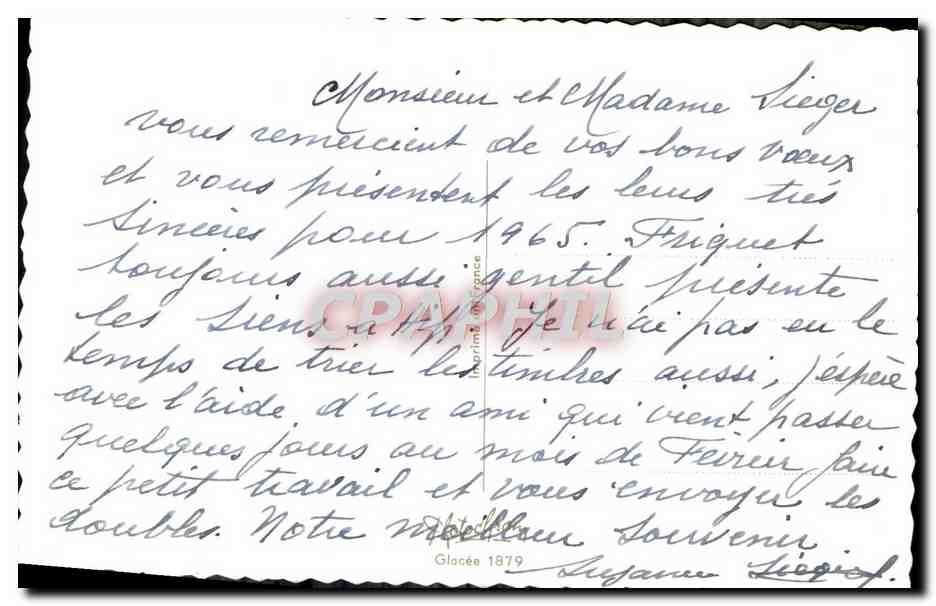 Monsieur et Madame Sieger
vous remercient de vos bons vœux
et vous présentent les leurs très
sincères pour 1965. Friquet
toujours aussi gentil présente
les siens à Je n'ai pas eu le
temps de trier les timbres aussi, j'éspère
avec l'aide d'un ami qui vient passer
quelques jours au mois de Février faire
ce petit travail et vous envoyer les
doubles. Notre meilleur souvenir
Suzanne
Imprimé en France
CPAPHIL
Glacée 1879